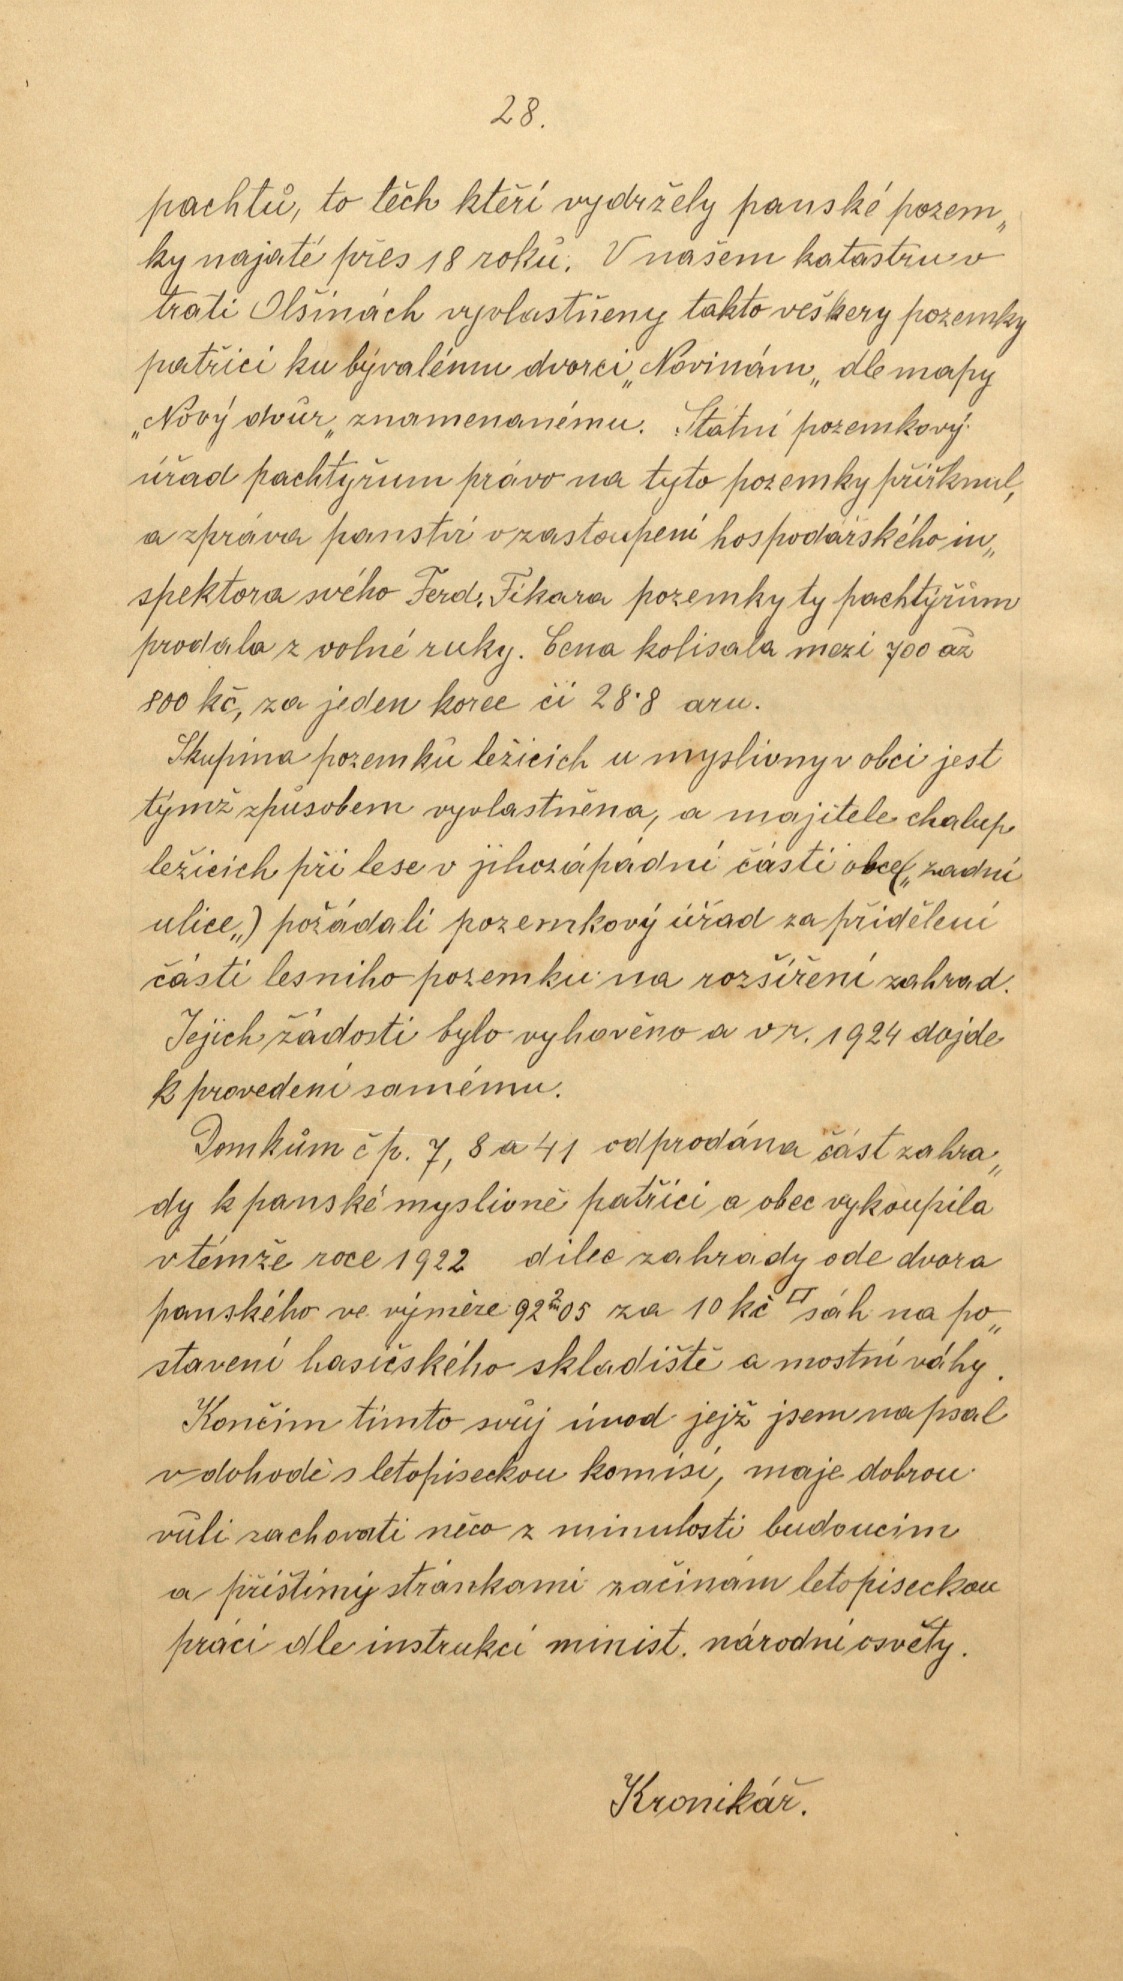 28.
pachtů, to těch kteří vydržely panské pozem„
ky najaté přes 18 roků. V našem katastru v
trati Olšinách vyvlastněny takto veškery pozemky
patřici ku bývalému dvorci „Novinám„ dle mapy
„Nový dvůr„ znamenanému. Státní pozemkový
úřad pachtyřum právo na tyto pozemky přiřknul,
a zpráva panstvi v zastoupení hospodářského in„
spektora svého Ferd. Fikara pozemky ty pachtýřům
prodala z volné ruky. Cena kolisala mezi 700 až
800 kč, za jeden korec či 28·8 aru.
Skupina pozemků ležicich u myslivny v obci jest
týmž způsobem vyvlastněna, a majitele chalup
ležicich při lese v jihozápadní části obce („zadní
ulice„) požádali pozemkový úřad za přidělení
části lesniho pozemku na rozšíření zahrad.
Jejich žádosti bylo vyhověno a v r. 1924 dojde
k provedení samému.
Domkům č p. 7, 8 a 41 odprodána část zahra„
dy k panské myslivně patřici a obec vykoupila
v témže roce 1922 dilec zahrady ode dvora
panského ve výměře 92 m² 05 za 10 kč □ sáh na po„
stavení hasičského skladiště a mostní váhy.
Končim timto svůj úvod jejž jsem napsal
v dohodě s letopiseckou komisí, maje dobrou
vůli zachovati něco z minulosti budoucim
a přištimi stránkami začinám letopiseckou
práci dle instrukcí minist. národní osvěty.
Kronikář.